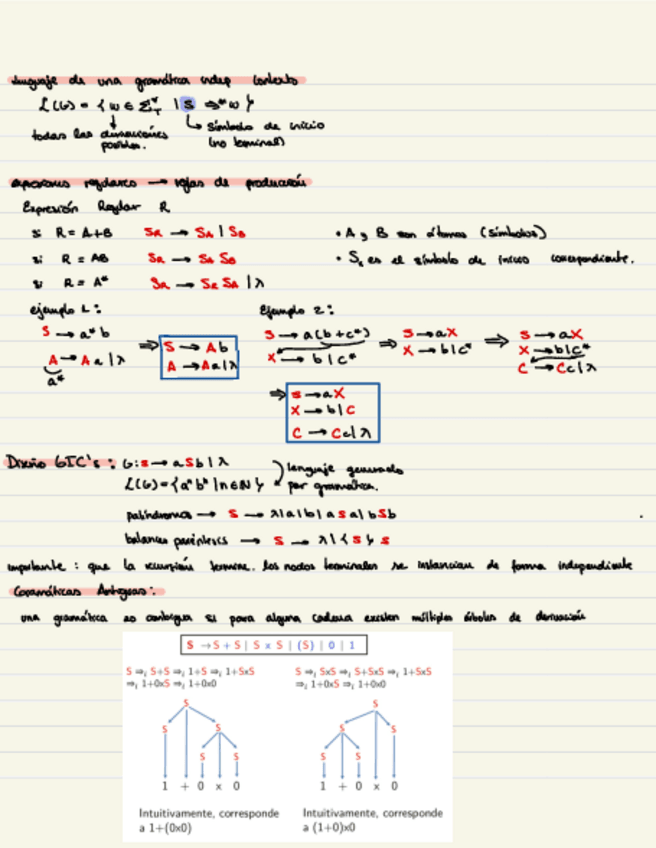 Lenguaje de una gramática indep contexto
L(G) = { w ∈ Σ*_T | S ⇒* w }
todas las derivaciones posibles. ↳ Símbolo de inicio (no terminal)
expresiones regulares → reglas de producción
Expresión Regular R
si R = A+B S_R → S_A | S_B • A y B son átomos (símbolos)
si R = AB S_R → S_A S_B • S_x es el símbolo de inicio correspondiente.
si R = A* S_R → S_R S_A | λ
ejemplo 1: Ejemplo 2:
S → a*b ⇒ S → Ab S → a(b+c*) ⇒ S → aX ⇒ S → aX
A → Aa | λ A → Aa | λ X → b | c* X → b | c* X → b | c*
a* C → Cc | λ
⇒ S → aX
X → b | C
C → Cc | λ
Diseño GIC's: G: S → aSb | λ lenguaje generado
L(G) = {aⁿbⁿ | n ∈ N} por gramática.
palíndromos → S → λ | a | b | aSa | bSb
balancea paréntesis → S → λ | { S } S
importante: que la recursión termine. los nodos terminales se instancian de forma independiente
Gramáticas Ambiguas:
una gramática es ambigua si para alguna cadena existen múltiples árboles de derivación
S → S + S | S x S | (S) | 0 | 1
S ⇒ᵢ S+S ⇒ᵢ 1+S ⇒ᵢ 1+SxS S ⇒ᵢ SxS ⇒ᵢ S+SxS ⇒ᵢ 1+SxS
⇒ᵢ 1+0xS ⇒ᵢ 1+0x0 ⇒ᵢ 1+0xS ⇒ᵢ 1+0x0
S S
S S S S
S S S S
1 + 0 x 0 1 + 0 x 0
Intuitivamente, corresponde Intuitivamente, corresponde
a 1+(0x0) a (1+0)x0